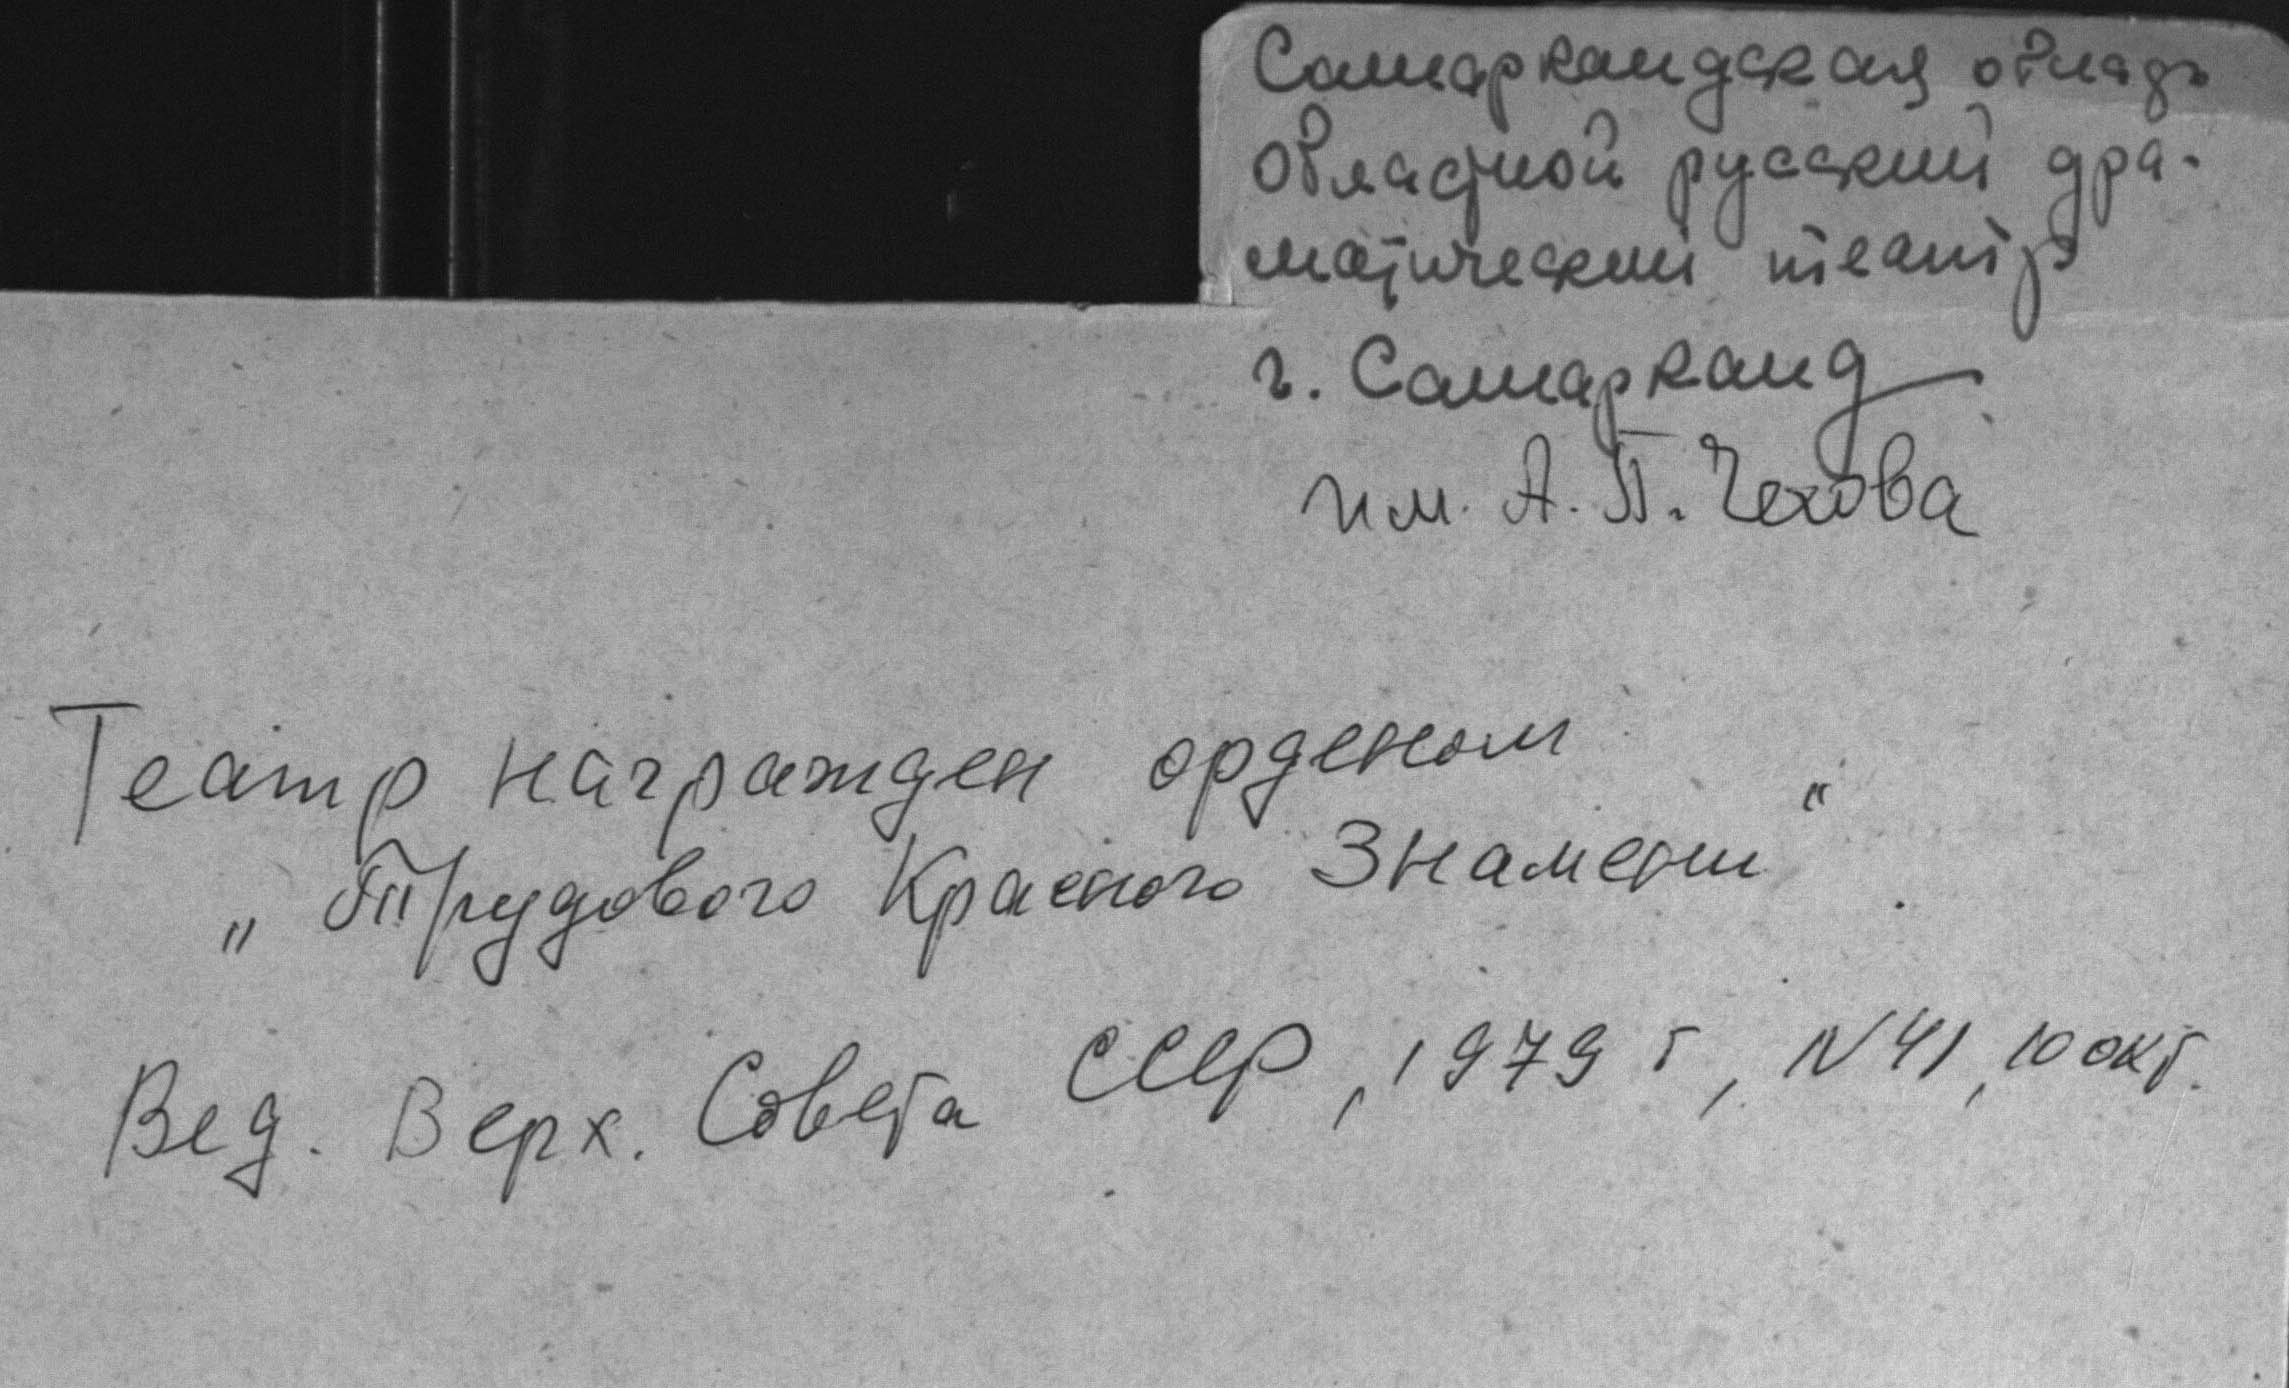 Самаркандская область
Областной русский дра-
матический театр
г. Самарканд
им. А. П. Чехова
Театр награжден орденом
„Трудового Красного Знамени“.
Вед. Верх. Совета СССР, 1979 г, N 41, 10 окт.